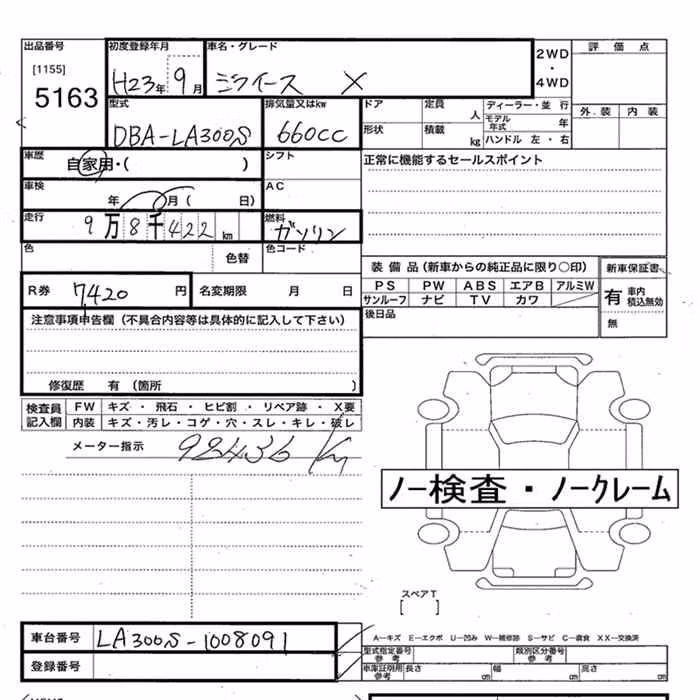 出品番号 初度登録年月 車名・グレード 2WD 評価点
[1155] H23年 9月 ミライース X ・
5163 4WD
型式 排気量又はkw ドア 定員 人 ディーラー・並行 外装 内装
DBA-LA300S 660cc 形状 積載 kg モデル年式 年
ハンドル 左・右
車歴 自家用・( ) シフト 正常に機能するセールスポイント
車検 年 月( 日) AC
走行 9万8千422km 燃料 ガソリン
色 色替 色コード
装備品(新車からの純正品に限り○印) 新車保証書
R券 7,420円 名変期限 月 日 PS PW ABS エアB アルミW 有 車内積込無効
サンルーフ ナビ TV カワ
注意事項申告欄(不具合内容等は具体的に記入して下さい) 後日品 無
修復歴 有 (箇所 )
検査員 FW キズ・飛石・ヒビ割・リペア跡・X要
記入欄 内装 キズ・汚レ・コゲ・穴・スレ・キレ・破レ
メーター指示 98436 Km
ノー検査・ノークレーム
スペアT
[ ]
車台番号 LA300S-1008091 A-キズ E-エクボ U-凹み W-補修跡 S-サビ C-腐食 XX-交換済
型式指定番号 参考 類別区分番号 参考
登録番号 車庫証明用 参考 長さ cm 幅 cm 高さ cm